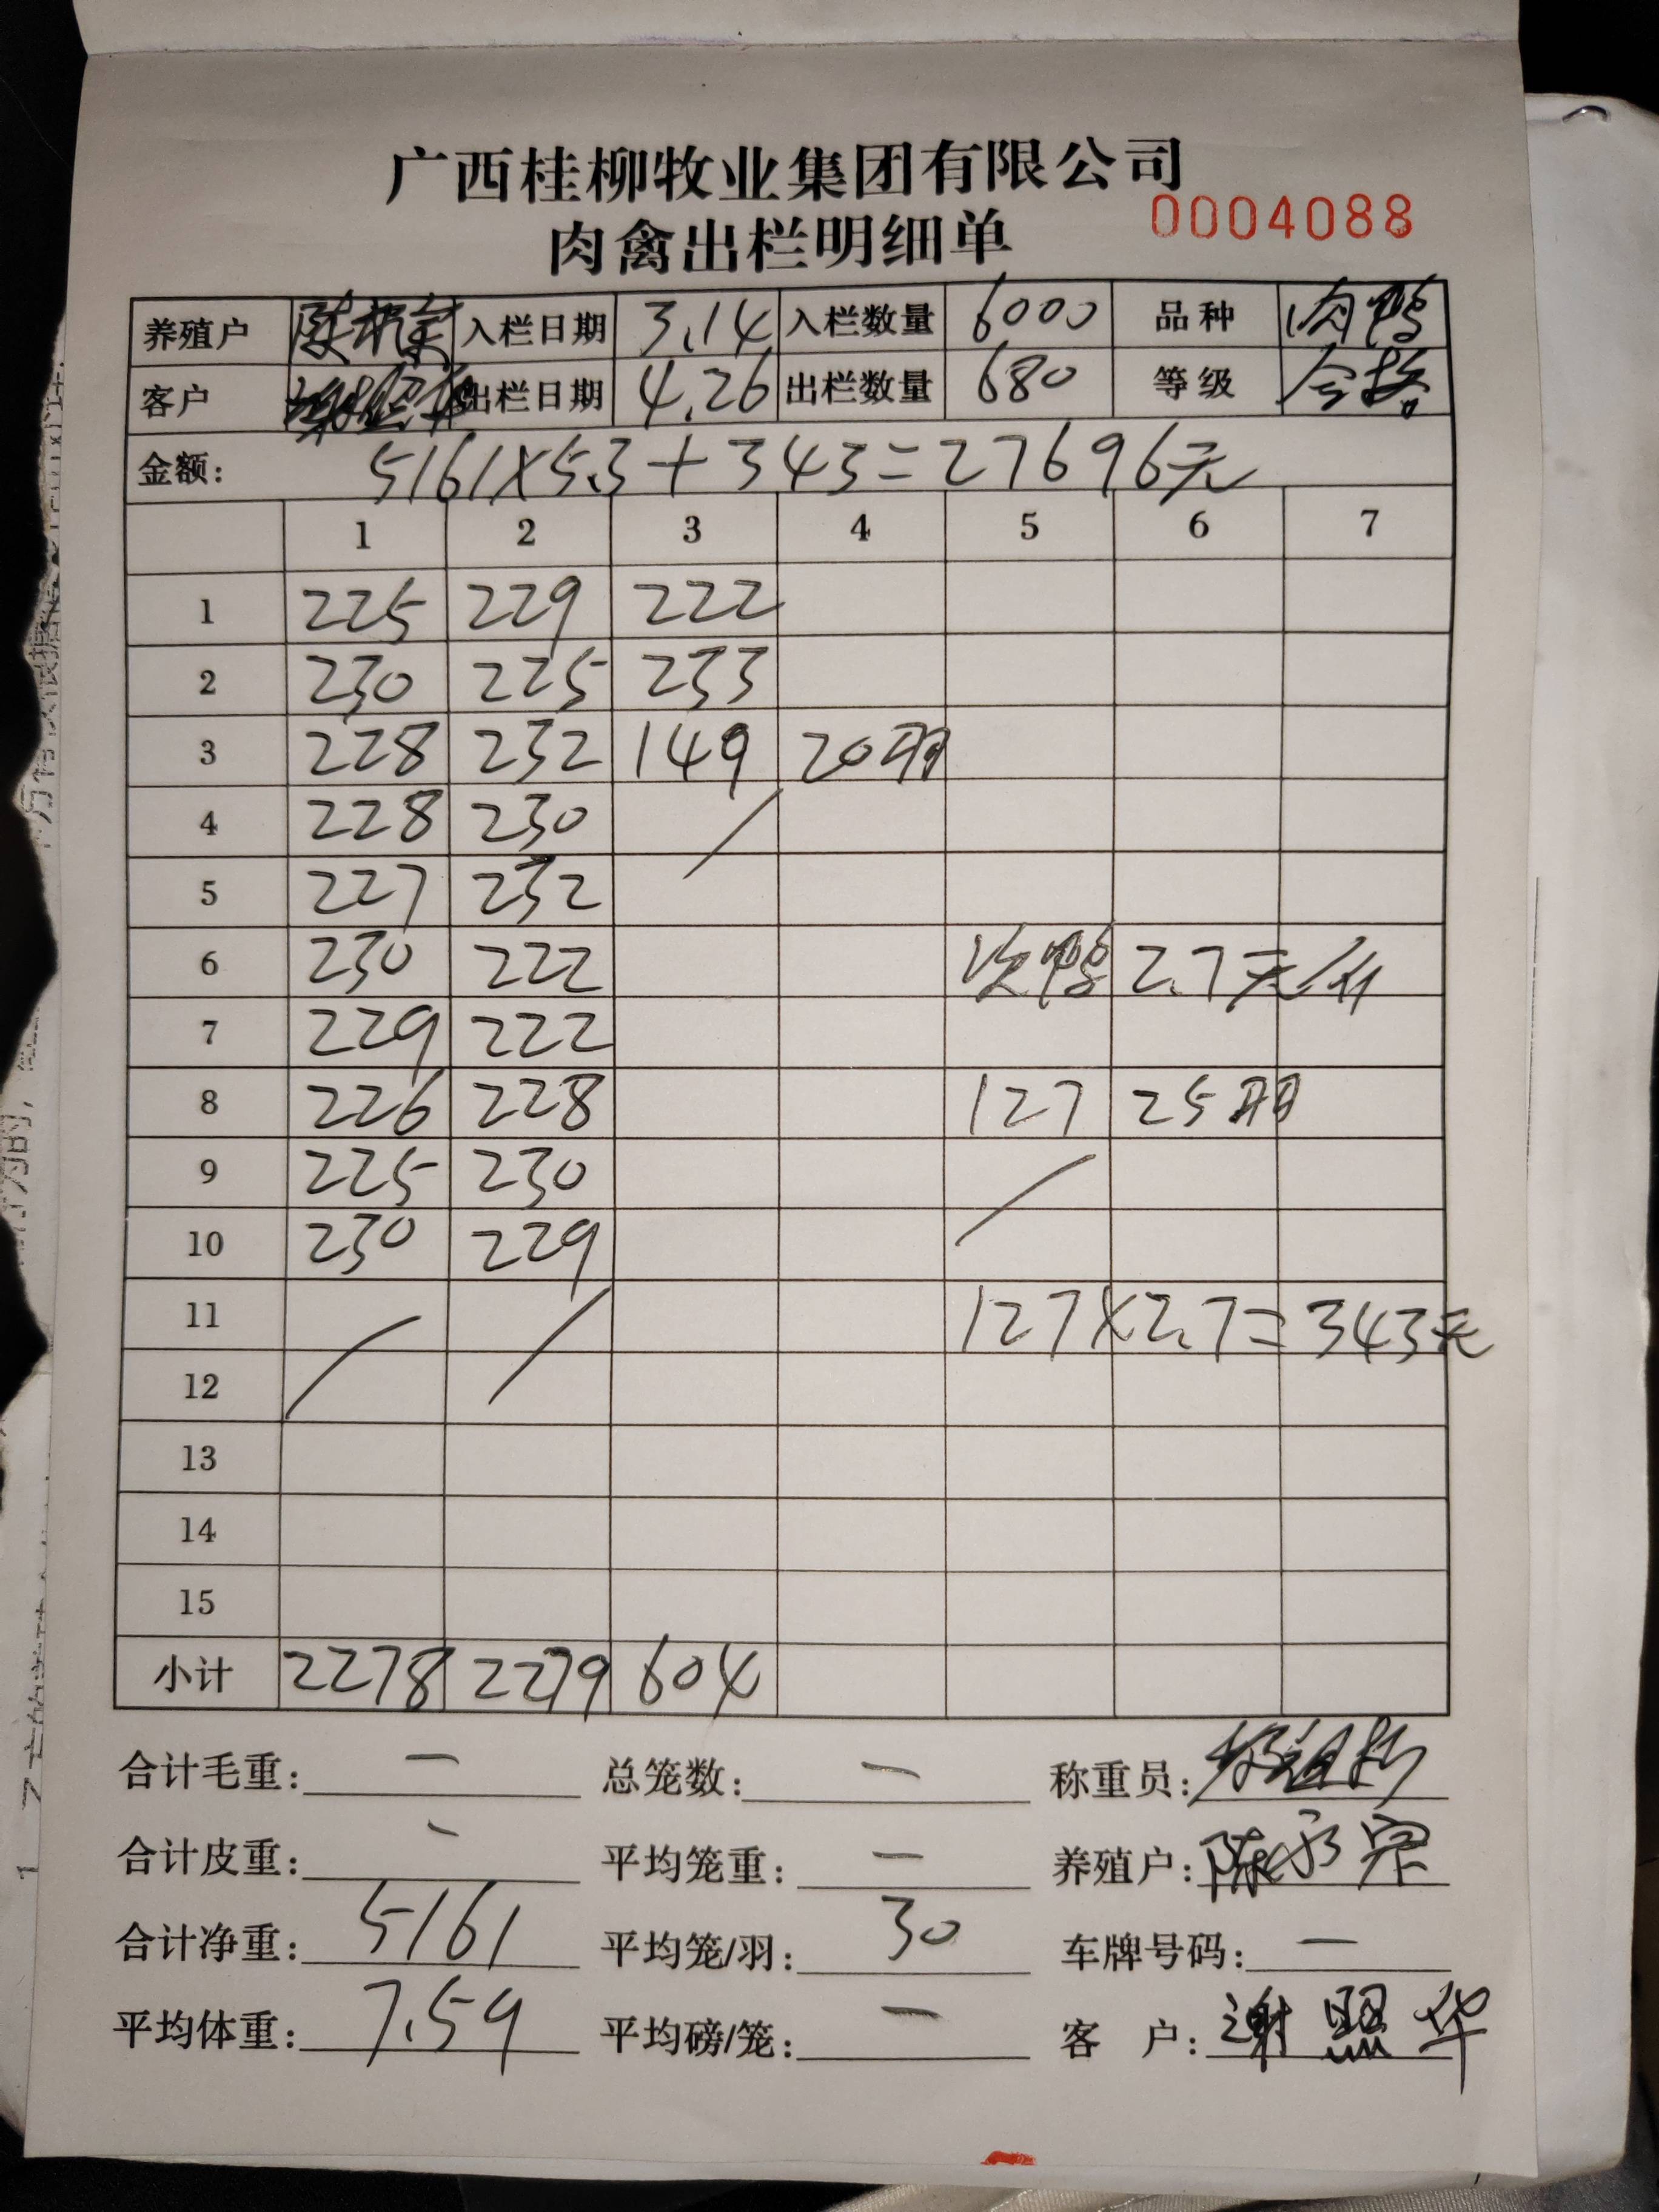 广西桂柳牧业集团有限公司
0004088
肉禽出栏明细单
养殖户 入栏日期 3.14 入栏数量 6000 品种 肉鸭
客户 谢照华 出栏日期 4.26 出栏数量 680 等级 合格
金额: 5161×5.3+343=27696元
1 2 3 4 5 6 7
1 225 229 222
2 230 225 233
3 228 232 149 20羽
4 228 230 /
5 227 232
6 230 222 次鸭 2.7元/斤
7 229 222
8 226 228 127 25羽
9 225 230 /
10 230 229
11 / / 127×2.7=343元
12
13
14
15
小计 2278 2279 604
合计毛重: — 总笼数: — 称重员:
合计皮重: — 平均笼重: — 养殖户:
合计净重: 5161 平均笼/羽: 30 车牌号码: —
平均体重: 7.59 平均磅/笼: — 客 户: 谢照华